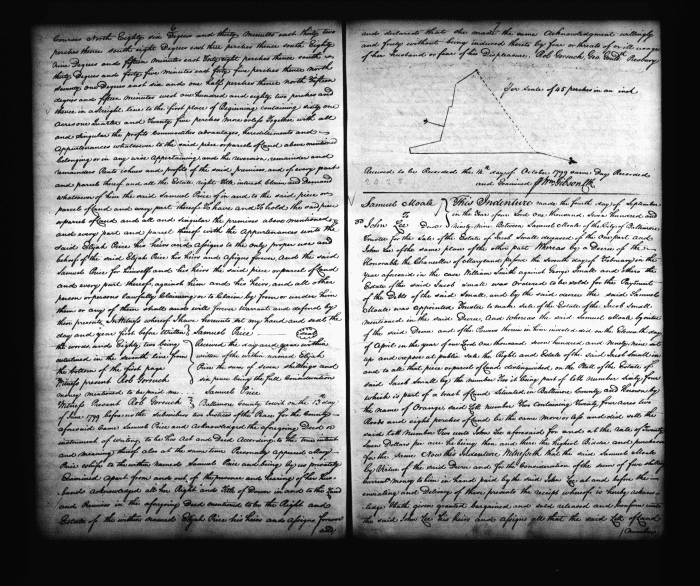 Courses North Eighty six Degrees and thirty Minutes east thirty two
perches thence south eight Degrees east three perches thence south Eighty
Nine Degrees and fifteen minutes east forty eight perches thence south
thirty Degrees and forty five minutes east forty four perches thence north
seventy one Degrees east six and one half perches thence north fifteen
degrees and fifteen minutes west one hundred and eighty two perches and
thence in a straight line to the first place of Beginning containing sixty one
Acres one Quarter and twenty five perches more or less Together with all
and singular the profits commodities advantages, hereditaments and
Appurtenances whatsoever to the said piece or parcel of Land above mentioned
belonging or in any wise Appertaining and the reversion remainder and
remainders Rents issues and profits of the said premises and of every part
and parcel thereof and all the Estate, right title, interest, claim and Demand
whatsoever of him the said Samuel Price of in and to the said piece or
parcel of Land and every part thereof To have and To hold the said piece
or parcel of Land and all and singular the premises above mentioned
and every part and parcel thereof with the Appurtenances unto the
said Elijah Price his heirs and Assigns to the only proper use and
behoof of the said Elijah Price his heirs and Assigns forever, And the said
Samuel Price for himself and his heirs the said piece or parcel of Land
and every part thereof, against him and his Heirs, and all other
person or persons lawfully Claiming or to Claim by from or under him
them or any of them shall and will forever Warrant and defend by
these presents In Witness whereof I have hereunto set my hand and seal the
day and year first before Written Samuel Price
the words, and Eighty two being Received the day and year within
entertined in the seventh line from written of the within named Elijah
the bottom of the first page Price the sum of seven shillings and
Witness present Rob Gorsuch six pence being the full Consideration
money mentioned to be paid me Samuel Price
Witness Present Rob Gorsuch Baltimore County court on the 13 day
of June 1799 before the subscribers Justices of the Peace for the County
aforesaid Came Samuel Price and Acknowledged the aforegoing Deed or
instrument of writing, to be his Act and Deed According to the true intent
and meaning thereof also at the same time Personally appeared Mary
Price wife to the within named Samuel Price and being by us privately
Examined Apart from and out of the presence and hearing of her Hus-
bands Acknowledged all her Right and title of Dower in and to the Land
and Premises in the aforegoing Deed mentioned to be the Right and
Estate of the within named Elijah Price his heirs and Assigns forever
and
and declared that she made the same Acknowledgment willingly
and freely without being induced thereto by fear or threats of or ill usage
of her husband or fear of his Displeasure. Rob Gorsuch, Geo
For scale of 45 perches in an inch
Received to be Recorded the 14th day of October 1799 same Day Recorded
and Examined Wm Gibson Clk
Samuel Moale This Indenture made the fourth day of September
To in the Year of our Lord one thousand, seven hundred and
John Lee Deed Ninety nine Between Samuel Moale of the City of Baltimore
Trustee for the Sale of the Estate of Jacob Small deceased of the One part and
John Lee of the same place of the other part Whereas by a Decree of the
Honorable the Chancellor of Maryland passed the seventh day of February in the
Year aforesaid in the case William Smith against George Small and others the
Estate of the said Jacob Small was ordered to be sold for the Payment
of the Debts of the said Small, and by the said decree the said Samuel
Moale was appointed Trustee to make sale of the Estate of the Jacob Small
mentioned in the said Decree, And whereas the said Samuel Moale by virtue
of the said Decree and of the Powers therein in him invested did on the Eleventh day
of April in the year of our Lord one thousand seven hundred and Ninety nine set
up and expose at public sale the Right and Estate of the said Jacob Small in
and to all that piece or parcel of Land, distinguished, on the Plat of the Estate of
said Jacob Small by the number two it being part of Lott number sixty four
which is part of a tract of Land Situated in Baltimore County and Known by
the name of Orange, said Lott Number two Containing twenty four Acres two
Roods and eight perches of Land be the same more or less and did sell the
said Lott Number Two unto John Lee aforesaid for and at the Rate of Twenty
seven Dollars per acre he being then and there the highest Bidder and purchaser
for the same Now this Indenture Witnesseth that the said Samuel Moale
by Virtue of the said Decree and for the Consideration of the sum of five shillings
current Money to him in hand paid by the said John Lee at and before the
ensealing and Delivery of these presents the receipt whereof is hereby acknow-
ledged Hath granted bargained and sold released and confirmed unto
the said John Lee his heirs and Assigns all that the said Lott of Land